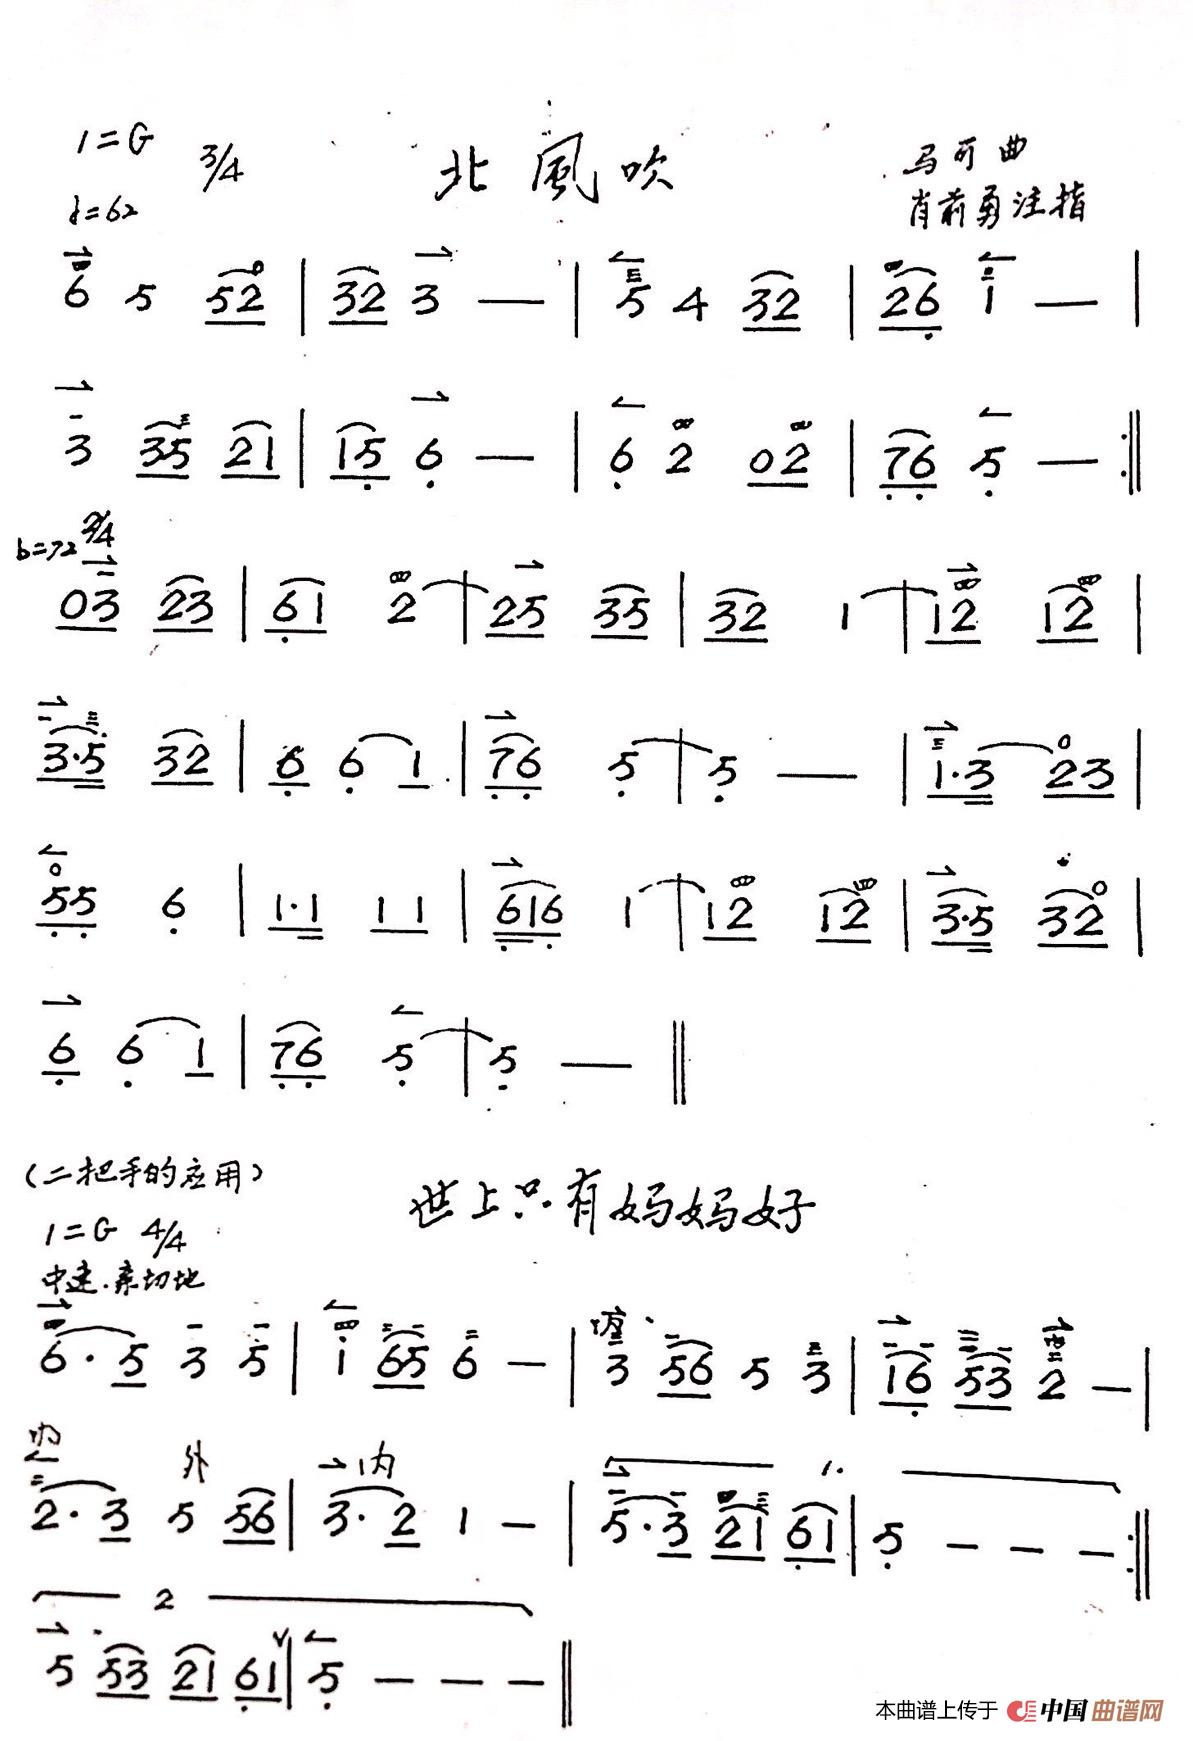 1=G 3/4 北風吹 马可曲
♩=62 肖前勇注指
6 5 52 | 32 3 — | 5 4 32 | 26 1 — |
3 35 21 | 15 6 — | 6 2 02 | 76 5 — :‖
♩=72 2/4
03 23 | 61 2 | 25 35 | 32 1 | 12 12 |
3·5 32 | 6 6 1 | 76 5 | 5 — | 1·3 23 |
55 6 | 1·1 11 | 616 1 | 12 12 | 3·5 32 |
6 6 1 | 76 5 | 5 — ‖
(二把手的应用) 世上只有妈妈好
1=G 4/4
中速.亲切地
6· 5 3 5 | 1 65 6 — | 3 56 5 3 | 16 53 2 — |
内 外 内 1.
2· 3 5 56 | 3· 2 1 — | 5·3 21 61 | 5 — — — :‖
2
5 53 21 61 | 5 — — — ‖
本曲谱上传于 中国曲谱网